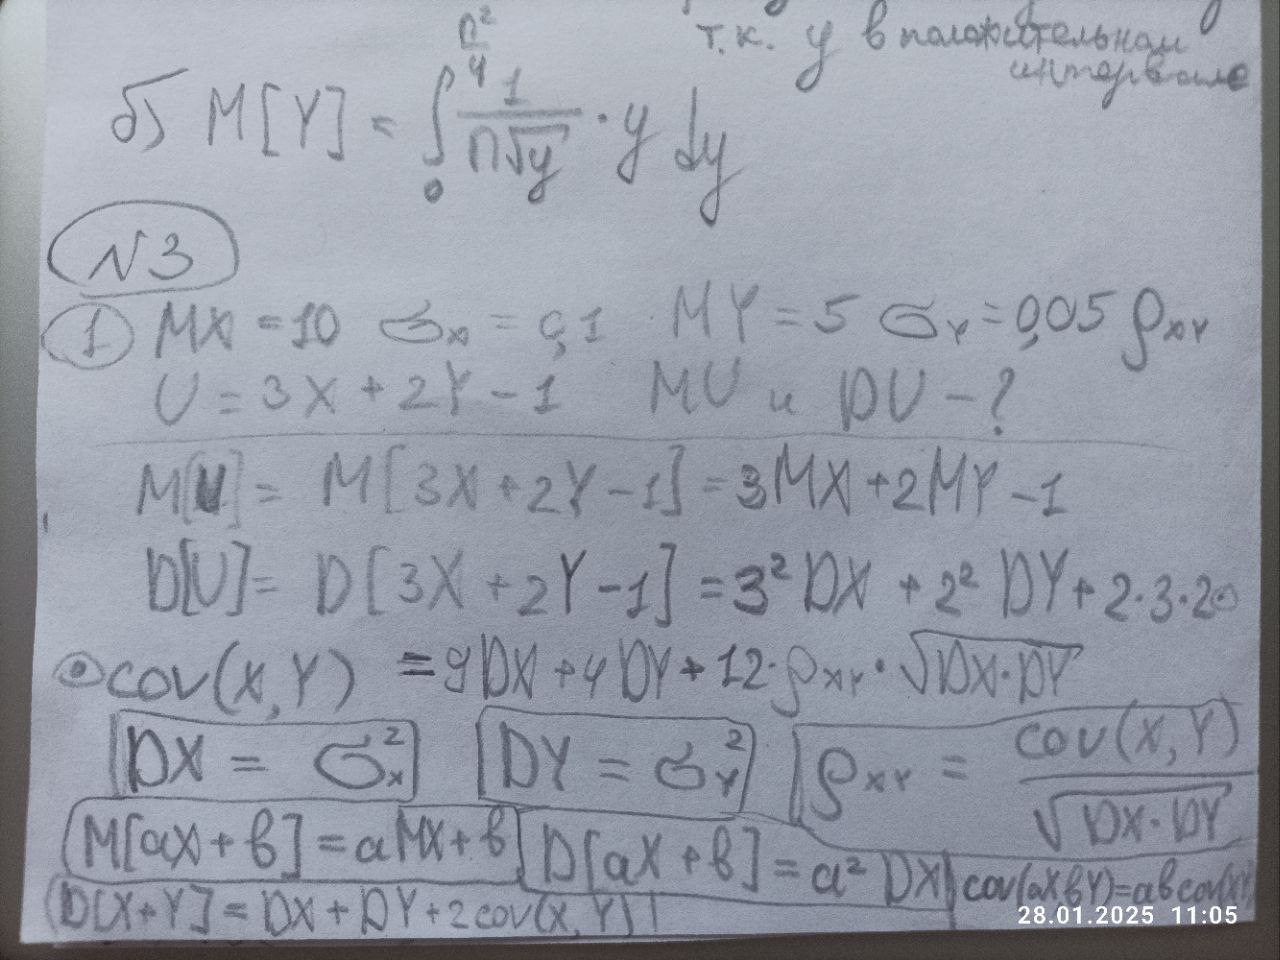 т.к. y в положительном
интервале
б) M[Y] = ∫₀^(π²/4) 1/(π√y) · y dy
N3
1 MX = 10 σₓ = 0,1 MY = 5 σ_Y = 0,05 ρ_XY
U = 3X + 2Y - 1 MU и DU - ?
M[U] = M[3X + 2Y - 1] = 3MX + 2MY - 1
D[U] = D[3X + 2Y - 1] = 3² DX + 2² DY + 2·3·2·
· cov(X, Y) = 9DX + 4DY + 12·ρ_XY · √(DX·DY)
DX = σ²ₓ DY = σ²_Y ρ_XY = cov(X, Y)/√(DX·DY)
M[aX + b] = aMX + b D[aX + b] = a² DX cov(aX bY) = ab cov(XY)
D[X+Y] = DX + DY + 2cov(X, Y)
28.01.2025 11:05